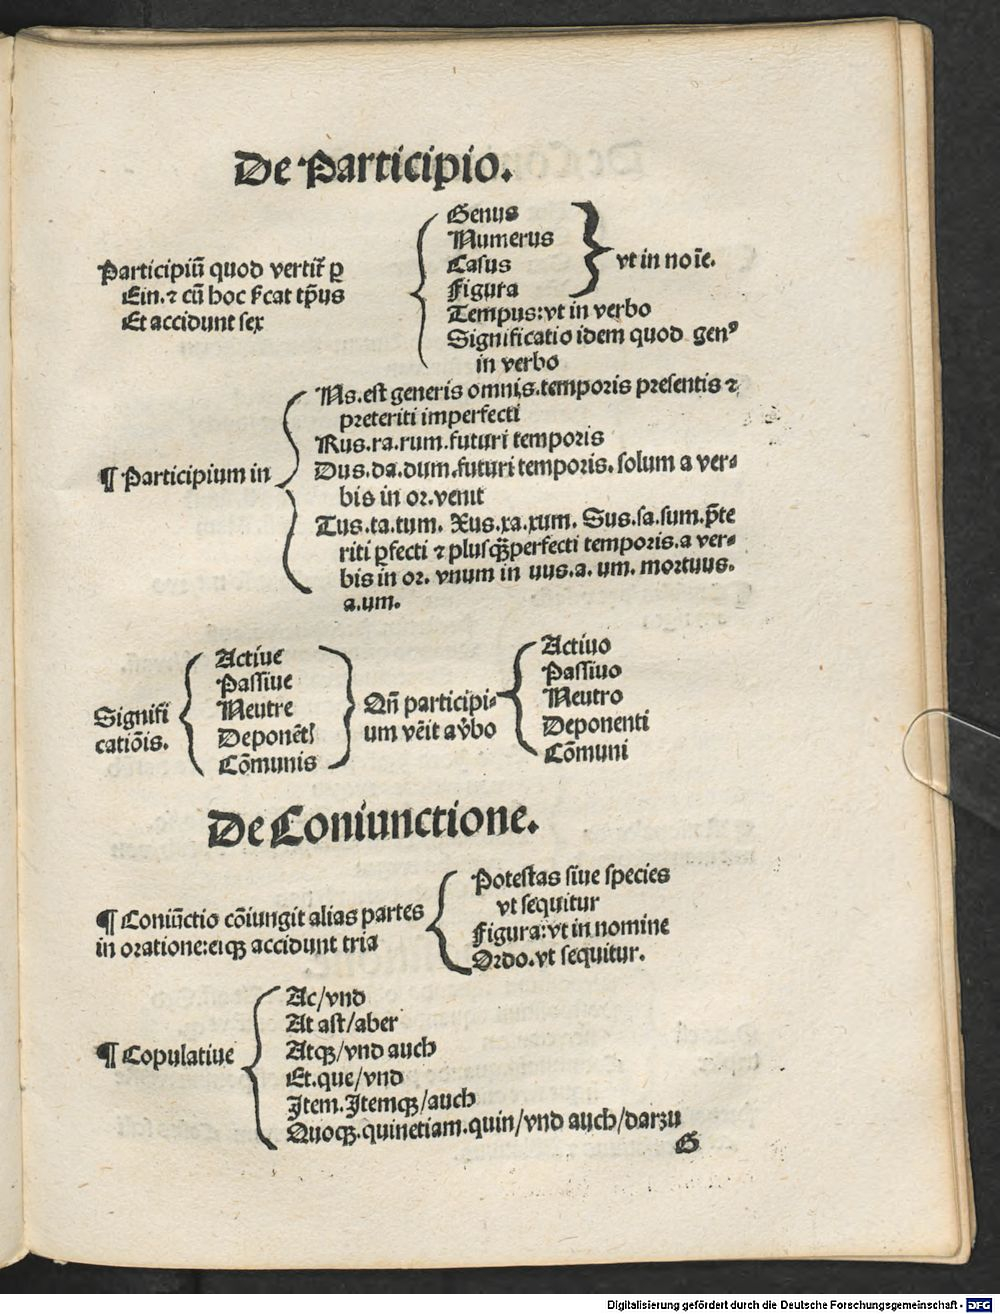 De Participio.
Participiū quod vertit̃ ꝑ
Ein. ⁊ cū hoc ſ̃cat tp̄us
Et accidunt ſex
Genus
Numerus
Caſus
Figura
vt in noīe.
Tempus: vt in verbo
Significatio idem quod genꝰ
in verbo
¶ Participium in
Ns. eſt generis omnis. temporis preſentis ⁊
preteriti imperfecti
Rus. ra. rum. futuri temporis
Dus. da. dum. futuri temporis. ſolum a ver⸗
bis in or. venit
Tus. ta. tum. Xus. xa. xum. Sus. ſa. ſum. p̄te
riti ꝑfecti ⁊ pluſqꝫperfecti temporis. a ver⸗
bis in or. vnum in uus. a. um. mortuus.
a. um.
Signifi
catiōis.
Actiue
Paſſiue
Neutre
Deponēt
Cōmunis
Qn̄ participi⸗
um vēit a v̄bo
Actiuo
Paſſiuo
Neutro
Deponenti
Cōmuni
De Coniunctione.
¶ Coniūctio cōiungit alias partes
in oratione: eiqꝫ accidunt tria
Poteſtas ſiue ſpecies
vt ſequitur
Figura: vt in nomine
Ordo. vt ſequitur.
¶ Copulatiue
Ac/vnd
At aſt/aber
Atqꝫ/vnd auch
Et. que/vnd
Item. Itemqꝫ/auch
Quoqꝫ. quinetiam. quin/vnd auch/darzu
G
Digitalisierung gefördert durch die Deutsche Forschungsgemeinschaft - DFG